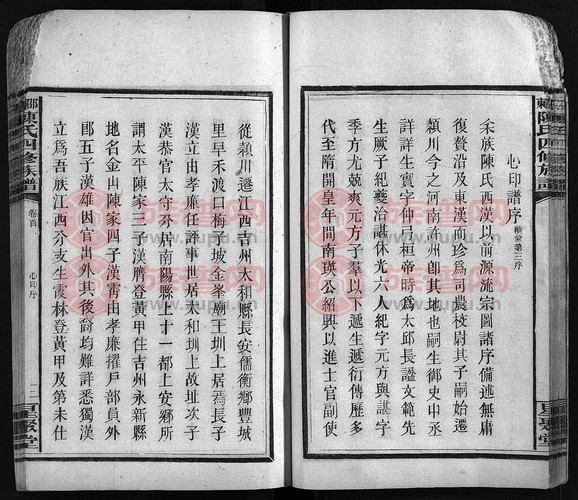 陳氏四修族譜
心印譜序 積堂第三序
余族陳氏西漢以前源流宗圖諸序備述無庸
復贅沿及東漢而珍爲司農校尉其子嗣始遷
潁川今之河南許州卽其地也嗣生御史中丞
詳詳生寔字仲弓桓帝時爲太邱長謚文範先
生厥子紀夔治諶休光六人紀字元方與諶字
季方尤競爽元方子羣以下遞生遞衍傳歷多
代至隋開皇年間南瑛公紹興以進士官副使
從潁川遷江西吉州太和縣長安儒衡鄉豐城
里早禾渡口梅子坡金峯廟王圳上居焉長子
漢立由孝廉任評事世居太和圳上故址次子
漢恭官太守分居南陽縣上十一都上安鄉所
謂太平陳家三子漢膺登黃甲住吉州永新縣
地名金山陳家四子漢霄由孝廉擢戶部員外
郎五子漢雄因官出外其後裔均難詳悉獨漢
立爲吾族江西分支生霞林登黃甲及第未仕
陳氏四修族譜
卷首
心印序
二
星聚堂
星聚堂
族譜网
www.zupu.cn
族譜网
www.zupu.cn